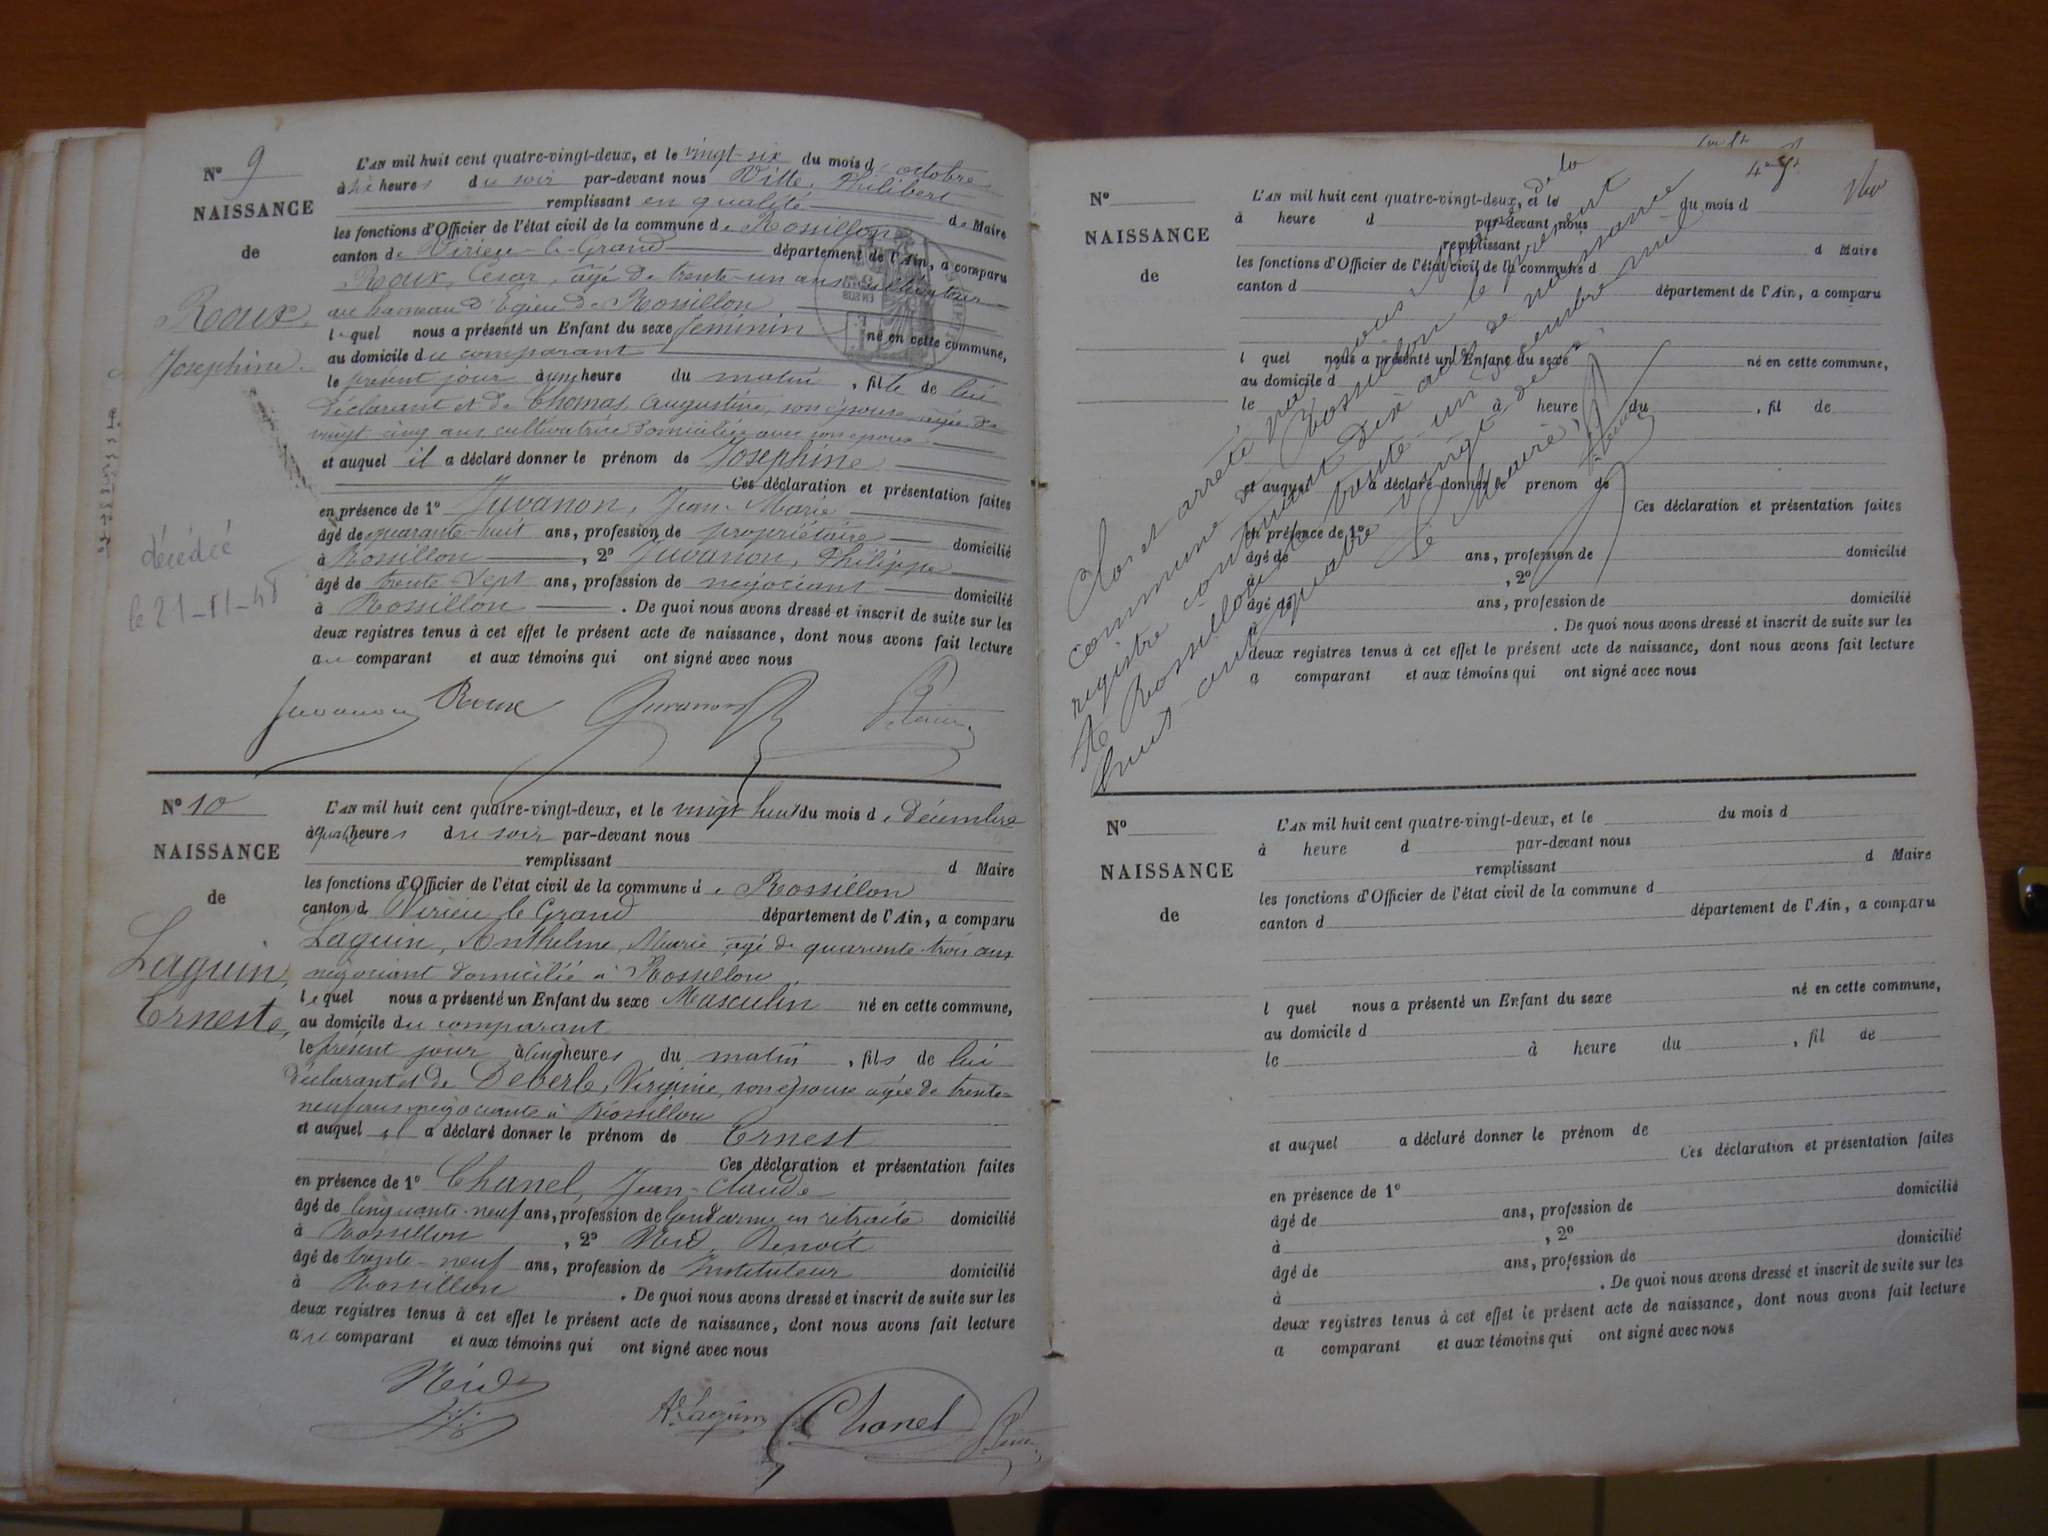 N° 9
NAISSANCE
de
Roux
Joséphine
décédée
le 21-11-45
L'AN mil huit cent quatre-vingt-deux, et le vingt-six du mois d'octobre
à heures du soir par-devant nous Vitte, Philibert
remplissant en qualité de Maire
les fonctions d'Officier de l'état civil de la commune de Rossillon
canton de Virieu-le-Grand département de l'Ain, a comparu
Roux, César, âgé de trente-un ans cultivateur
au hameau d'Egieu de Rossillon
lequel nous a présenté un Enfant du sexe féminin né en cette commune,
au domicile du comparant
le présent jour à heure du matin, fille de lui
déclarant et de Thomas, Augustine, son épouse, âgée de
vingt cinq ans cultivatrice domiciliée avec son époux
et auquel il a déclaré donner le prénom de Joséphine
Ces déclaration et présentation faites
en présence de 1° Juvanon, Jean-Marie
âgé de quarante-huit ans, profession de propriétaire domicilié
à Rossillon, 2° Juvanon, Philippe
âgé de trente-sept ans, profession de négociant domicilié
à Rossillon. De quoi nous avons dressé et inscrit de suite sur les
deux registres tenus à cet effet le présent acte de naissance, dont nous avons fait lecture
au comparant et aux témoins qui ont signé avec nous
Juvanon Roux Juvanon
N° 10
NAISSANCE
de
Laguin,
Ernest
L'AN mil huit cent quatre-vingt-deux, et le vingt huit du mois de décembre
à quatre heures du soir par-devant nous
remplissant d Maire
les fonctions d'Officier de l'état civil de la commune de Rossillon
canton d Virieu le Grand département de l'Ain, a comparu
Laguin, Anthelme, Marie âgé de quarante-trois ans
négociant domicilié à Rossillon
lequel nous a présenté un Enfant du sexe Masculin né en cette commune,
au domicile du comparant
le présent jour à cinq heures du matin, fils de lui
déclarant et de Deberle, Virginie, son épouse âgée de trente-
neuf ans négociante à Rossillon
et auquel il a déclaré donner le prénom de Ernest
Ces déclaration et présentation faites
en présence de 1° Chanel, Jean-Claude
âgé de cinquante-neuf ans, profession de Gendarme en retraite domicilié
à Rossillon, 2° Benoît
âgé de trente-neuf ans, profession de Instituteur domicilié
à Rossillon. De quoi nous avons dressé et inscrit de suite sur les
deux registres tenus à cet effet le présent acte de naissance, dont nous avons fait lecture
au comparant et aux témoins qui ont signé avec nous
Ae Laguin Chanel
N°
NAISSANCE
de
L'AN mil huit cent quatre-vingt-deux, et le du mois d
à heure d par-devant nous
remplissant d Maire
les fonctions d'Officier de l'état civil de la commune d
canton d département de l'Ain, a comparu
l quel nous a présenté un Enfant du sexe né en cette commune,
au domicile d
le à heure du , fil de
et auquel a déclaré donner le prénom de
Ces déclaration et présentation faites
en présence de 1°
âgé de ans, profession de domicilié
à , 2°
âgé de ans, profession de domicilié
à . De quoi nous avons dressé et inscrit de suite sur les
deux registres tenus à cet effet le présent acte de naissance, dont nous avons fait lecture
a comparant et aux témoins qui ont signé avec nous
Clos et arrêté par nous, Maire de la
commune de Rossillon le présent
registre contenant dix actes de naissance
A Rossillon le trente-un décembre mil
huit-cent quatre vingt deux.
Le Maire,
N°
NAISSANCE
de
L'AN mil huit cent quatre-vingt-deux, et le du mois d
à heure d par-devant nous
remplissant d Maire
les fonctions d'Officier de l'état civil de la commune d
canton d département de l'Ain, a comparu
l quel nous a présenté un Enfant du sexe né en cette commune,
au domicile d
le à heure du , fil de
et auquel a déclaré donner le prénom de
Ces déclaration et présentation faites
en présence de 1°
âgé de ans, profession de domicilié
à , 2°
âgé de ans, profession de domicilié
à . De quoi nous avons dressé et inscrit de suite sur les
deux registres tenus à cet effet le présent acte de naissance, dont nous avons fait lecture
a comparant et aux témoins qui ont signé avec nous